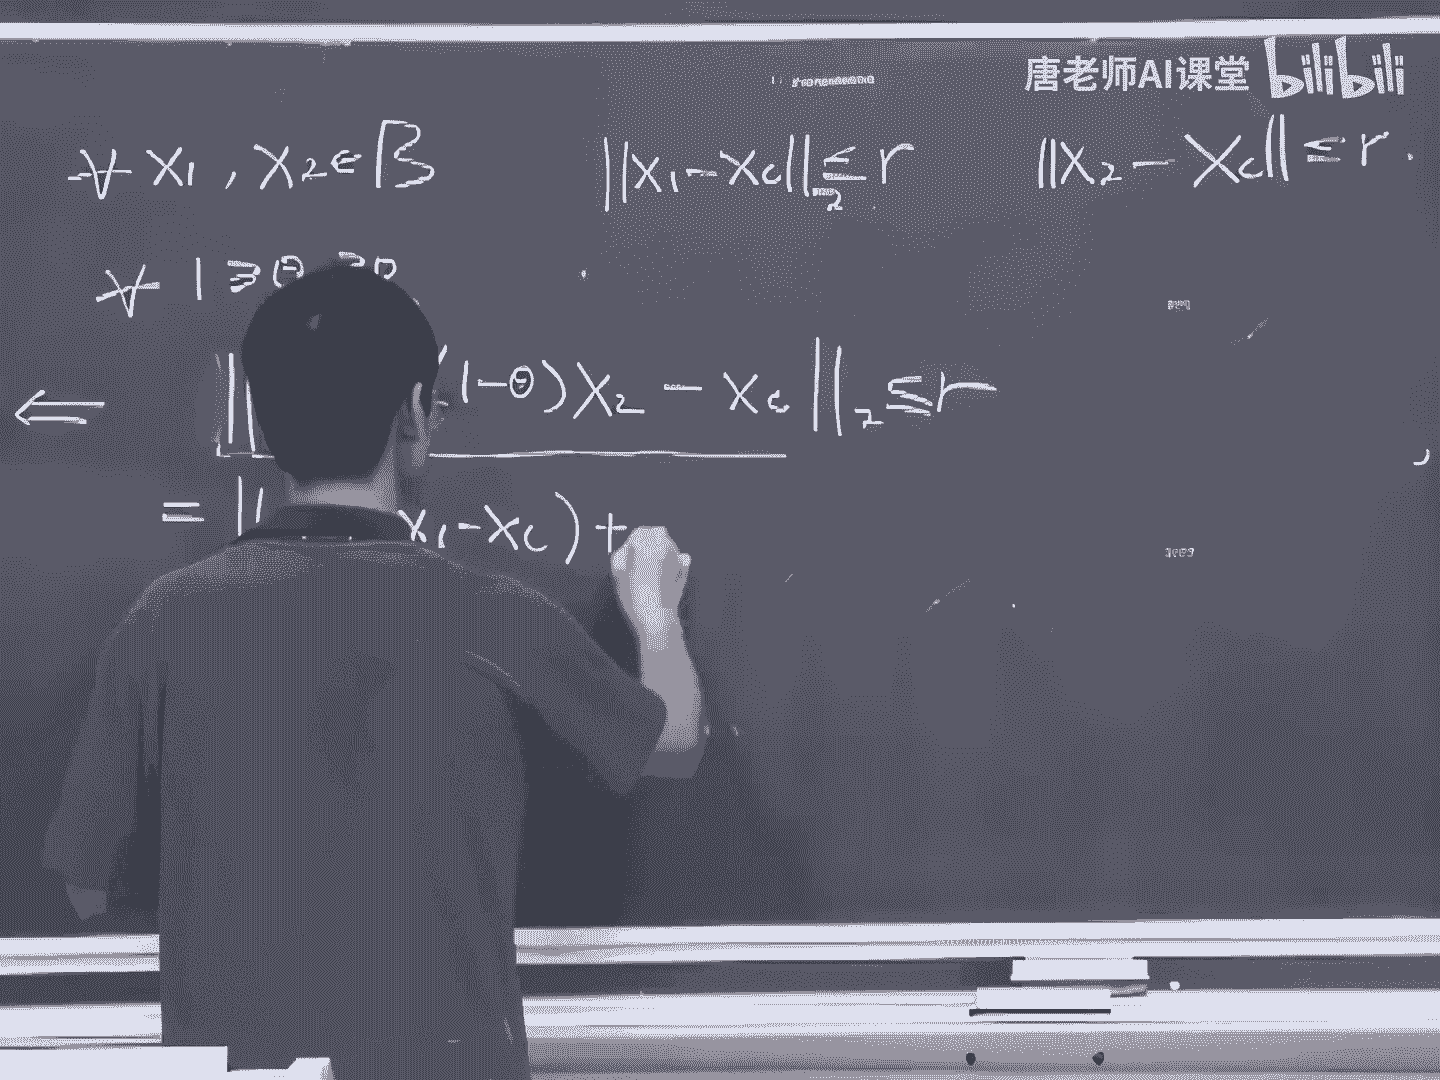 唐老师AI课堂 bilibili
∀ x₁ , x₂ ∈ B ‖x₁ - x_c‖₂ ≤ r ‖x₂ - x_c‖ ≤ r .
∀ 1 ≥ θ ≥ 0
⇐ ‖ (1-θ)x₂ - x_c ‖₂ ≤ r
= ‖ x₁ - x_c ) +